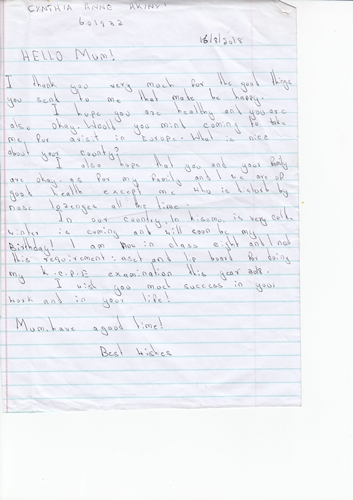 CYNTHIA ANNE AKINYI
601932
16/8/2018
HELLO MUM!
I thank you very much for the good things
you sent to me that made be happy.
I hope you are healthy and you are
also okay. Would you mind coming to take
me for a visit in Europe. What is nice
about your country?
I also hope that you and your
are okay. as for my family and I we are of
good health except me who is by
nose all the time.
In our country, In kisumu is very cold
winter is coming and will soon be my
Birthday! I am now in class eight and I not
this requirement: a set and board for doing
my K.C.P.E examination this year 2018.
I wish you much success in your
work and in your life!
Mum, have a good time!
Best wishes